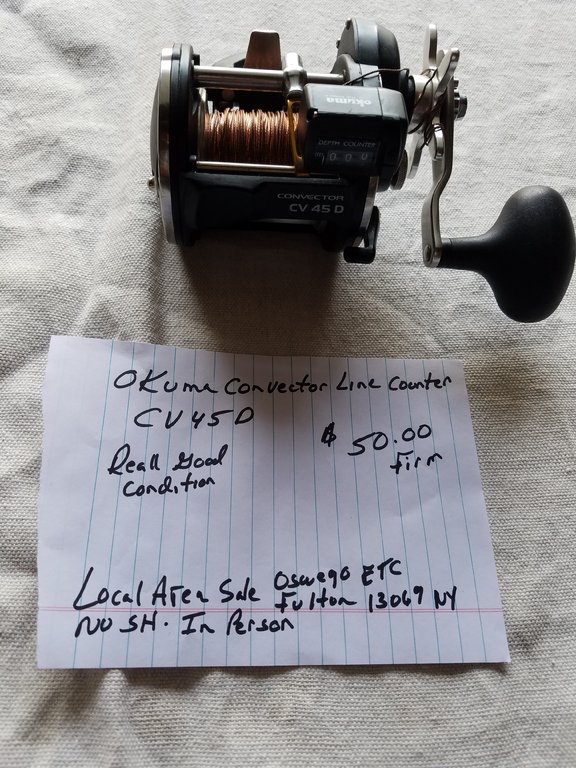 okuma
DEPTH COUNTER
CONVECTOR
CV 45 D
OKuma Convector Line Counter
CV45D
$ 50.00
Firm
Reall Good
Condition
Local Area Sale Oswego ETC
Fulton 13069 NY
NO SH. In Person